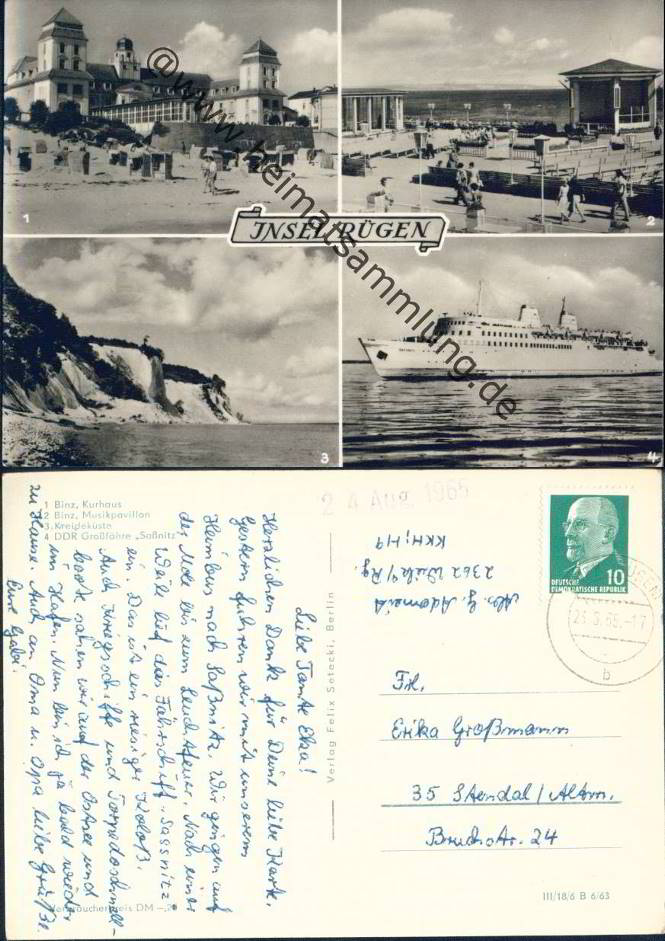 1
2
INSEL RÜGEN
3
4
@www.heimatsammlung.de
1 Binz, Kurhaus
2 Binz, Musikpavillon
3 Kreideküste
4 DDR Großfähre „Saßnitz"
24 Aug. 1965
Liebe Tante Eka!
Herzlichen Dank für Deine liebe Karte.
Gestern fuhren wir mit unserem
Heimbus nach Saßnitz. Wir gingen auf
der Mole bis zum Leuchtfeuer. Nach einer
Weile lief die Fährschiff „Sassnitz"
ein. Das ist ein riesiger Koloß.
Auch Kriegsschiffe und Torpedoschnell-
boote sahen wir auf der Ostsee und
im Hafen. Nun bin ich ja bald wieder
zu Hause. Auch an Oma u. Opa liebe Grüße.
Eure Gabi.
Verbraucherpreis DM -,20
Verlag Felix Setecki, Berlin
Abs. G. Adomeit
2362 Wiek/Rg.
KKH, H9
DEUTSCHE
DEMOKRATISCHE REPUBLIK
10
65.-17
b
Frl.
Erika Großmann
35 Stendal/Altm.
Bruchstr. 24
III/18/6 B 6/63